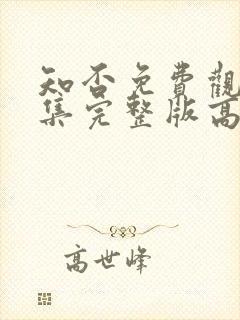 知否免費觀
集完整版高
高世峰